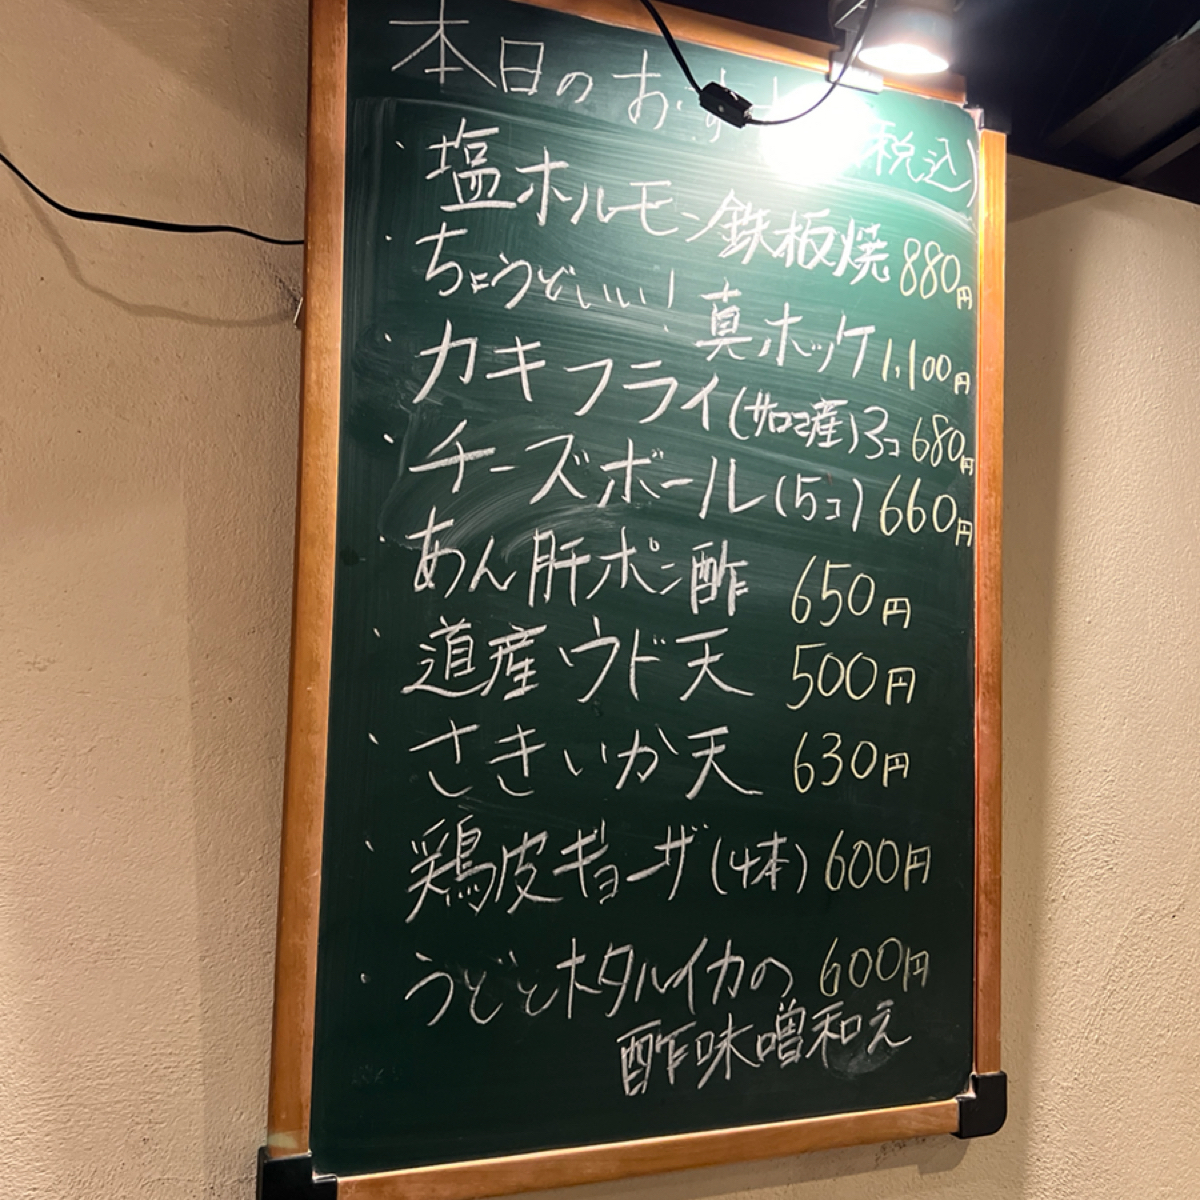 本日のおす 税込)
・塩ホルモン鉄板焼 880円
・ちょうどいい！真ホッケ 1,100円
・カキフライ(サロマ産)3コ 680円
・チーズボール(5コ) 660円
・あん肝ポン酢 650円
・道産ウド天 500円
・さきいか天 630円
・鶏皮ギョーザ(4本) 600円
・うどとホタルイカの 600円
酢味噌和え